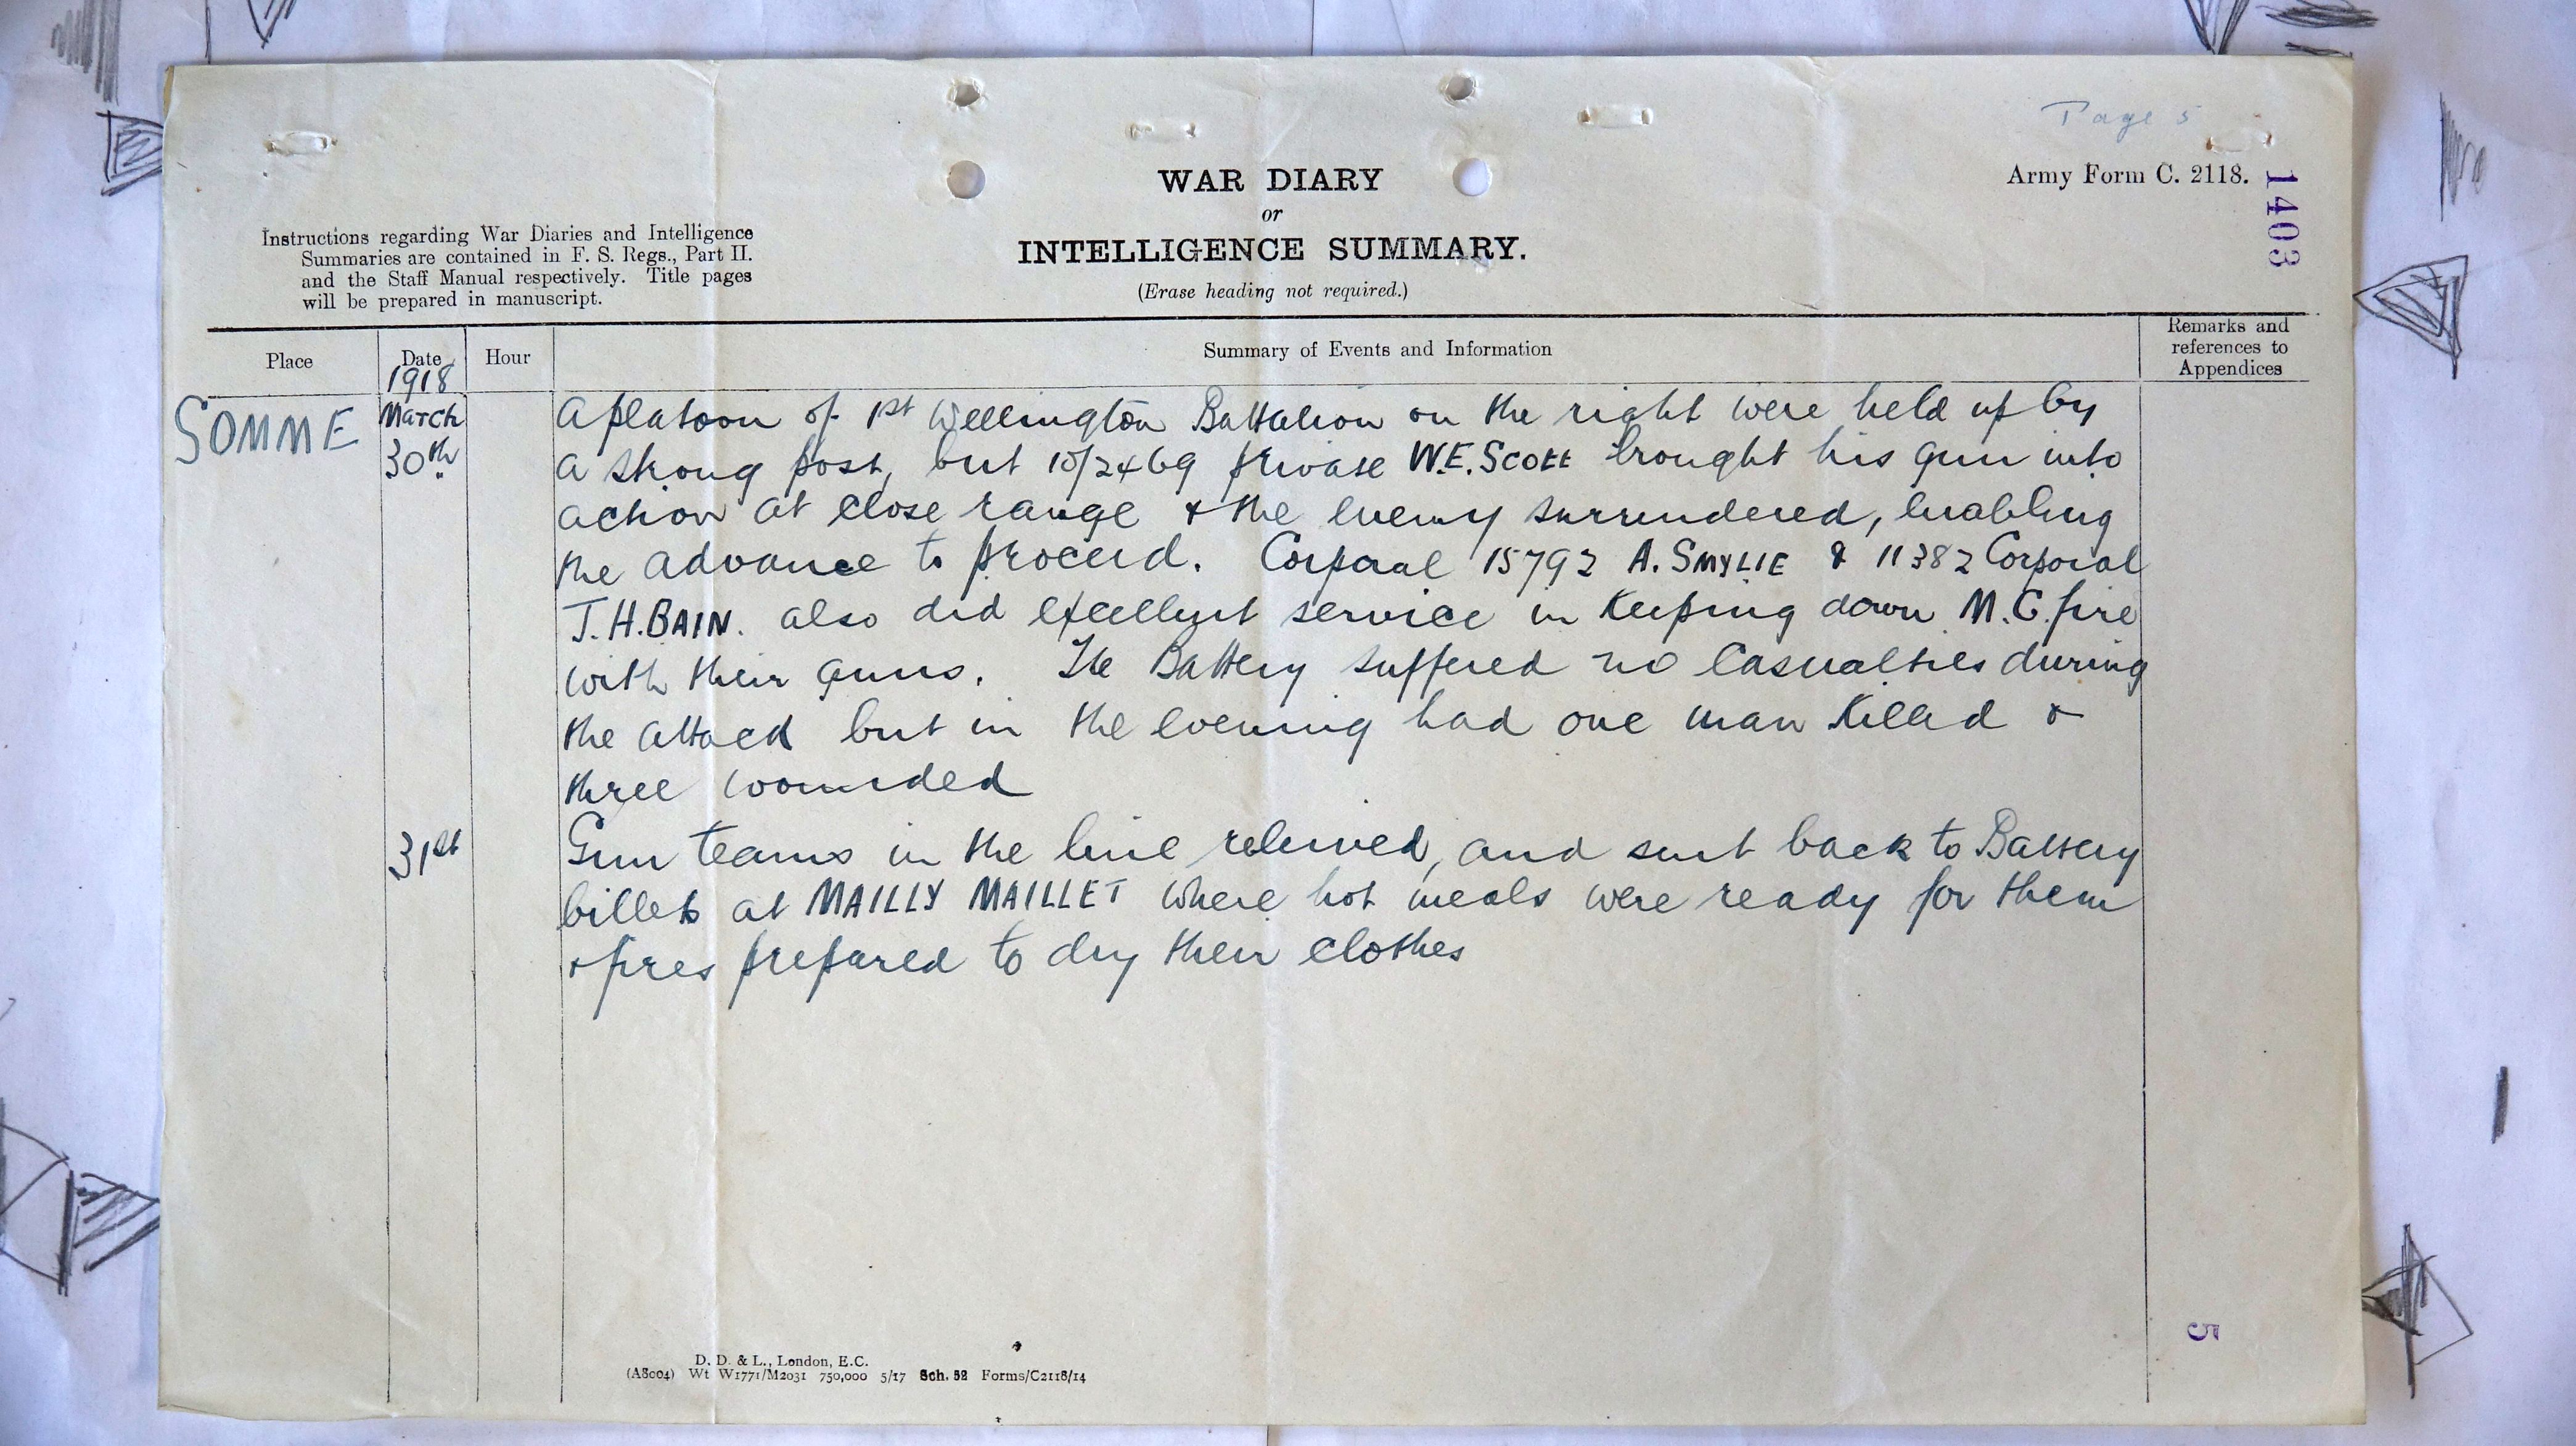 Page 5
Army Form C. 2118.
1403
WAR DIARY
or
INTELLIGENCE SUMMARY.
(Erase heading not required.)
Instructions regarding War Diaries and Intelligence
Summaries are contained in F. S. Regs., Part II.
and the Staff Manual respectively. Title pages
will be prepared in manuscript.
Place
Date
1918
Hour
Summary of Events and Information
Remarks and
references to
Appendices
SOMME
March
30th
A platoon of 1st Wellington Battalion on the right were held up by
a strong post, but 10/2469 Private W.E. SCOTT brought his gun into
action at close range & the enemy surrendered, enabling
the advance to proceed. Corporal 15792 A. SMYLIE & 11382 Corporal
J.H. BAIN. also did excellent service in keeping down M.G. fire
with their guns. The Battery suffered no casualties during
the attack but in the evening had one man killed &
three wounded
31st
Gun teams in the line relieved, and sent back to Battery
billets at MAILLY MAILLET where hot meals were ready for them
& fires prepared to dry their clothes
5
D. D. & L., London, E.C.
(A8004) Wt W1771/M2031 750,000 5/17 Sch. 52 Forms/C2118/14